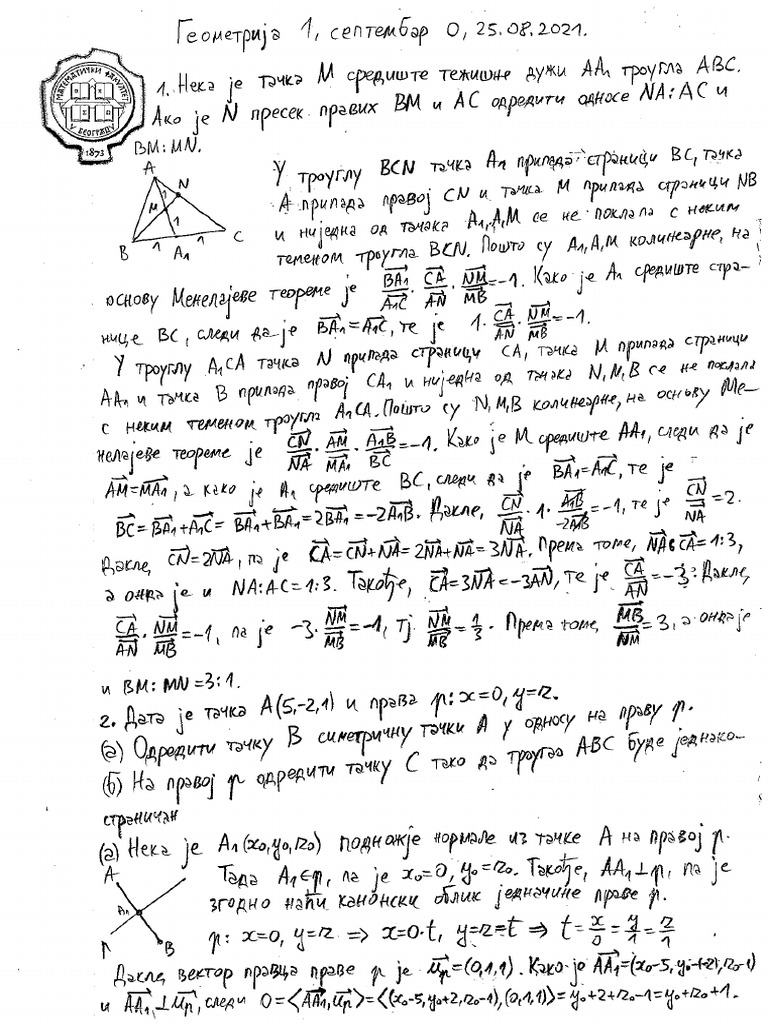 Геометрија 1, септембар 0, 25.08.2021.
МАТЕМАТИЧКИ ФАКУЛТЕТ
У БЕОГРАДУ
1873
1. Нека је тачка M средиште тежишне дужи AA₁ троугла ABC.
Ако је N пресек правих BM и AC одредити односе NA:AC и
BM:MN.
A
N
1
M
1
B
1
A₁
1
C
У троуглу BCN тачка A₁ припада страници BC, тачка
A припада правој CN и тачка M припада страници NB
и ниједна од тачака A₁,A,M се не поклапа с неким
теменом троугла BCN. Пошто су A₁,A,M колинеарне, на
основу Менелајеве теореме је \frac{\vec{BA₁}}{\vec{A₁C}}·\frac{\vec{CA}}{\vec{AN}}·\frac{\vec{NM}}{\vec{MB}}=-1. Како је A₁ средиште стра-
нице BC, следи да је \vec{BA₁}=\vec{A₁C}, те је 1·\frac{\vec{CA}}{\vec{AN}}·\frac{\vec{NM}}{\vec{MB}}=-1.
У троуглу A₁CA тачка N припада страници CA, тачка M припада страници
AA₁ и тачка B припада правој CA₁ и ниједна од тачака N,M,B се не поклапа
с неким теменом троугла A₁CA. Пошто су N,M,B колинеарне, на основу Ме-
нелајеве теореме је \frac{\vec{CN}}{\vec{NA}}·\frac{\vec{AM}}{\vec{MA₁}}·\frac{\vec{A₁B}}{\vec{BC}}=-1. Како је M средиште AA₁, следи да је
\vec{AM}=\vec{MA₁}, а како је A₁ средиште BC, следи да је \vec{BA₁}=\vec{A₁C}, те је
\vec{BC}=\vec{BA₁}+\vec{A₁C}=\vec{BA₁}+\vec{BA₁}=2\vec{BA₁}=-2\vec{A₁B}. Дакле, \frac{\vec{CN}}{\vec{NA}}·1·\frac{\vec{A₁B}}{-2\vec{A₁B}}=-1, те је \frac{\vec{CN}}{\vec{NA}}=2.
Дакле, \vec{CN}=2\vec{NA}, па је \vec{CA}=\vec{CN}+\vec{NA}=2\vec{NA}+\vec{NA}=3\vec{NA}. Према томе, \vec{NA}:\vec{CA}=1:3,
а онда је и NA:AC=1:3. Такође, \vec{CA}=3\vec{NA}=-3\vec{AN}, те је \frac{\vec{CA}}{\vec{AN}}=-3. Дакле,
\frac{\vec{CA}}{\vec{AN}}·\frac{\vec{NM}}{\vec{MB}}=-1, па је -3·\frac{\vec{NM}}{\vec{MB}}=-1, тј. \frac{\vec{NM}}{\vec{MB}}=\frac{1}{3}. Према томе, \frac{\vec{MB}}{\vec{NM}}=3, а онда је
и BM:MN=3:1.
2. Дата је тачка A(5,-2,1) и права p:x=0, y=z.
(а) Одредити тачку B симетричну тачки A у односу на праву p.
(б) На правој p одредити тачку C тако да троугао ABC буде једнако-
страничан
(а) Нека је A₁(x₀,y₀,z₀) подножје нормале из тачке A на правој p.
A
A₁
B
p
Тада A₁∈p, па је x₀=0, y₀=z₀. Такође, AA₁⊥p, па је
згодно наћи канонски облик једначине праве p.
p: x=0, y=z ⇒ x=0·t, y=z=t ⇒ t=\frac{x}{0}=\frac{y}{1}=\frac{z}{1}
Дакле, вектор правца праве p је \vec{u_p}=(0,1,1). Како је \vec{AA₁}=(x₀-5,y₀-(-2),z₀-1)
и \vec{AA₁}⊥\vec{u_p}, следи 0=⟨\vec{AA₁},\vec{u_p}⟩=⟨(x₀-5,y₀+2,z₀-1),(0,1,1)⟩=y₀+2+z₀-1=y₀+z₀+1.